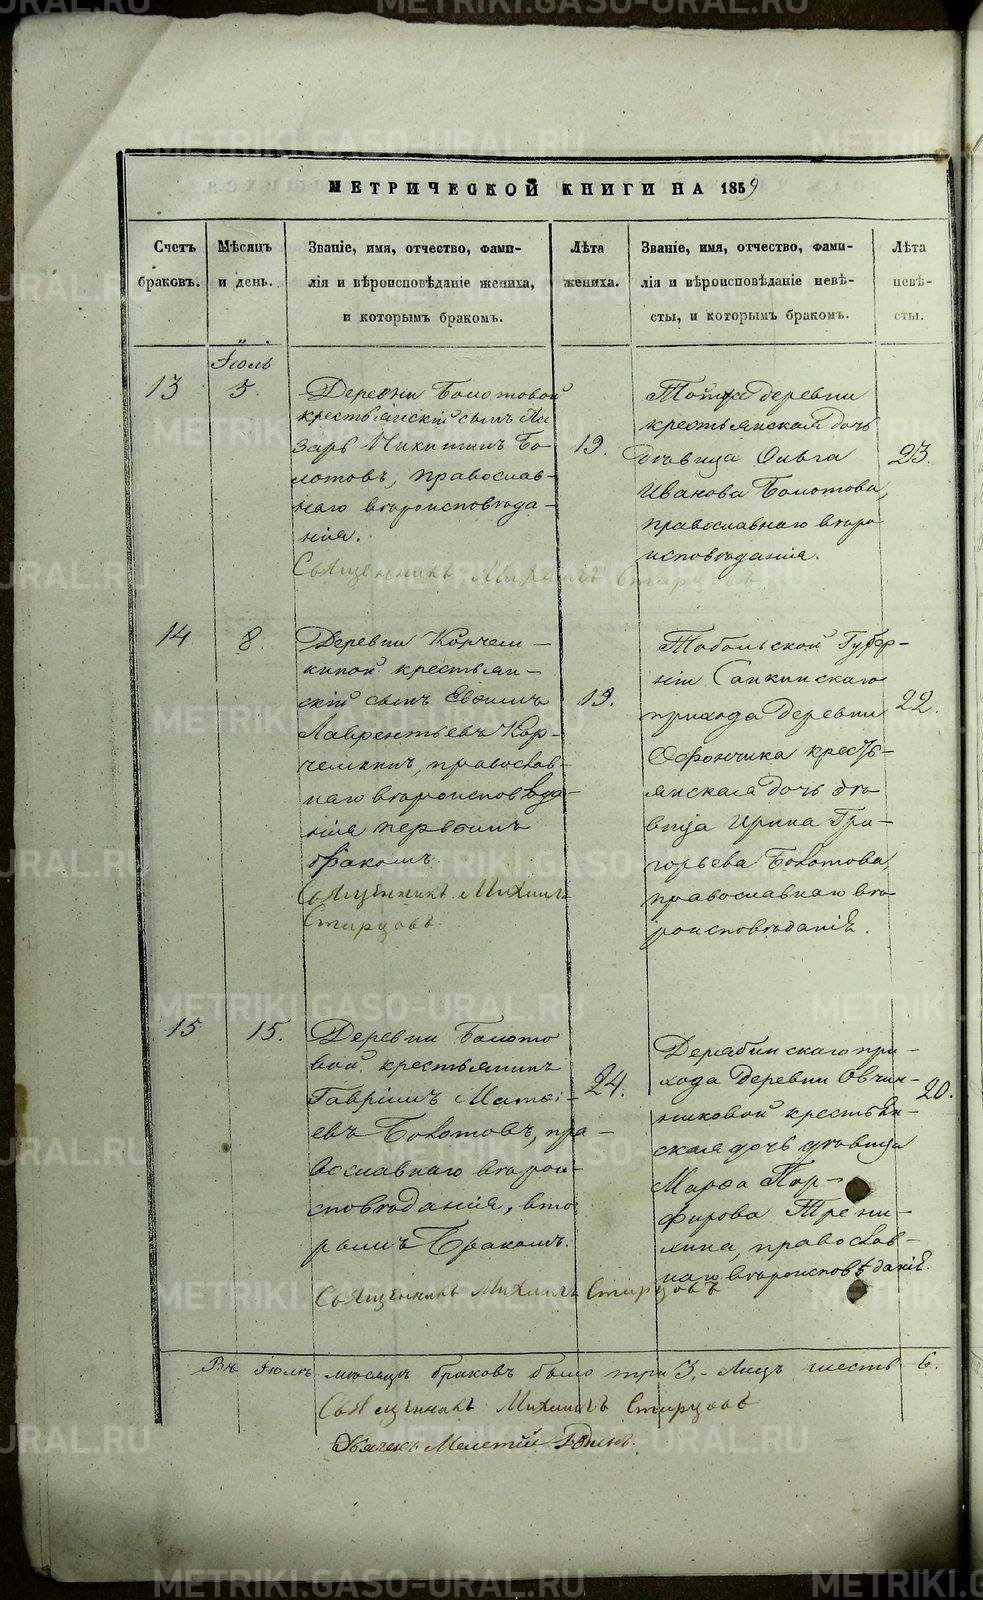 МЕТРИЧЕСКОЙ КНИГИ НА 1859
Счетъ браковъ.
Мѣсяцъ и день.
Званіе, имя, отчество, фами-
лія и вѣроисповѣданіе жениха,
и которымъ бракомъ.
Лѣта жениха.
Званіе, имя, отчество, фами-
лія и вѣроисповѣданіе невѣ-
сты, и которымъ бракомъ.
Лѣта невѣ-
сты.
Іюль
13
5.
Деревни Болотовой
крестьянскій сынъ На
зарь Никитинъ Бо
лотовъ, православ-
наго вѣроисповѣда-
нія.
19.
Тойже деревни
крестьянская дочь
дѣвица Ольга
Иванова Болотова,
православнаго вѣро
исповѣданія.
23.
Священникъ Михаилъ Старцовъ
14
8.
Деревни Корчем-
киной крестьян-
скій сынъ Евѳимъ
Лаврентьевъ Кор-
чемкинъ, православ-
наго вѣроисповѣда-
нія первымъ
бракомъ.
Священникъ Михаилъ
Старцовъ
19.
Тобольской Губер-
ніи
прихода деревни
крестьянская дочь дѣ
вица Ирина Гри-
горьева Болотова,
православнаго вѣ
роисповѣданія.
22.
15
15.
Деревни Болото
вой крестьянинъ
Гавріилъ Матѳі-
евъ Болотовъ, пра-
вославнаго вѣрои-
сповѣданія, вто
рымъ Бракомъ.
24.
Дерябинскаго при-
хода деревни Овчин-
никовой крестьян-
ская дочь дѣвица
Марѳа Пор-
фирова
православ-
наго вѣроисповѣданія.
20.
Священникъ Михаилъ Старцовъ
Въ Іюлѣ мѣсяцѣ браковъ было три 3,- лицъ шесть 6.
Священникъ Михаилъ Старцовъ
Дьячекъ Мелетій
METRIKI.GASO-URAL.RU